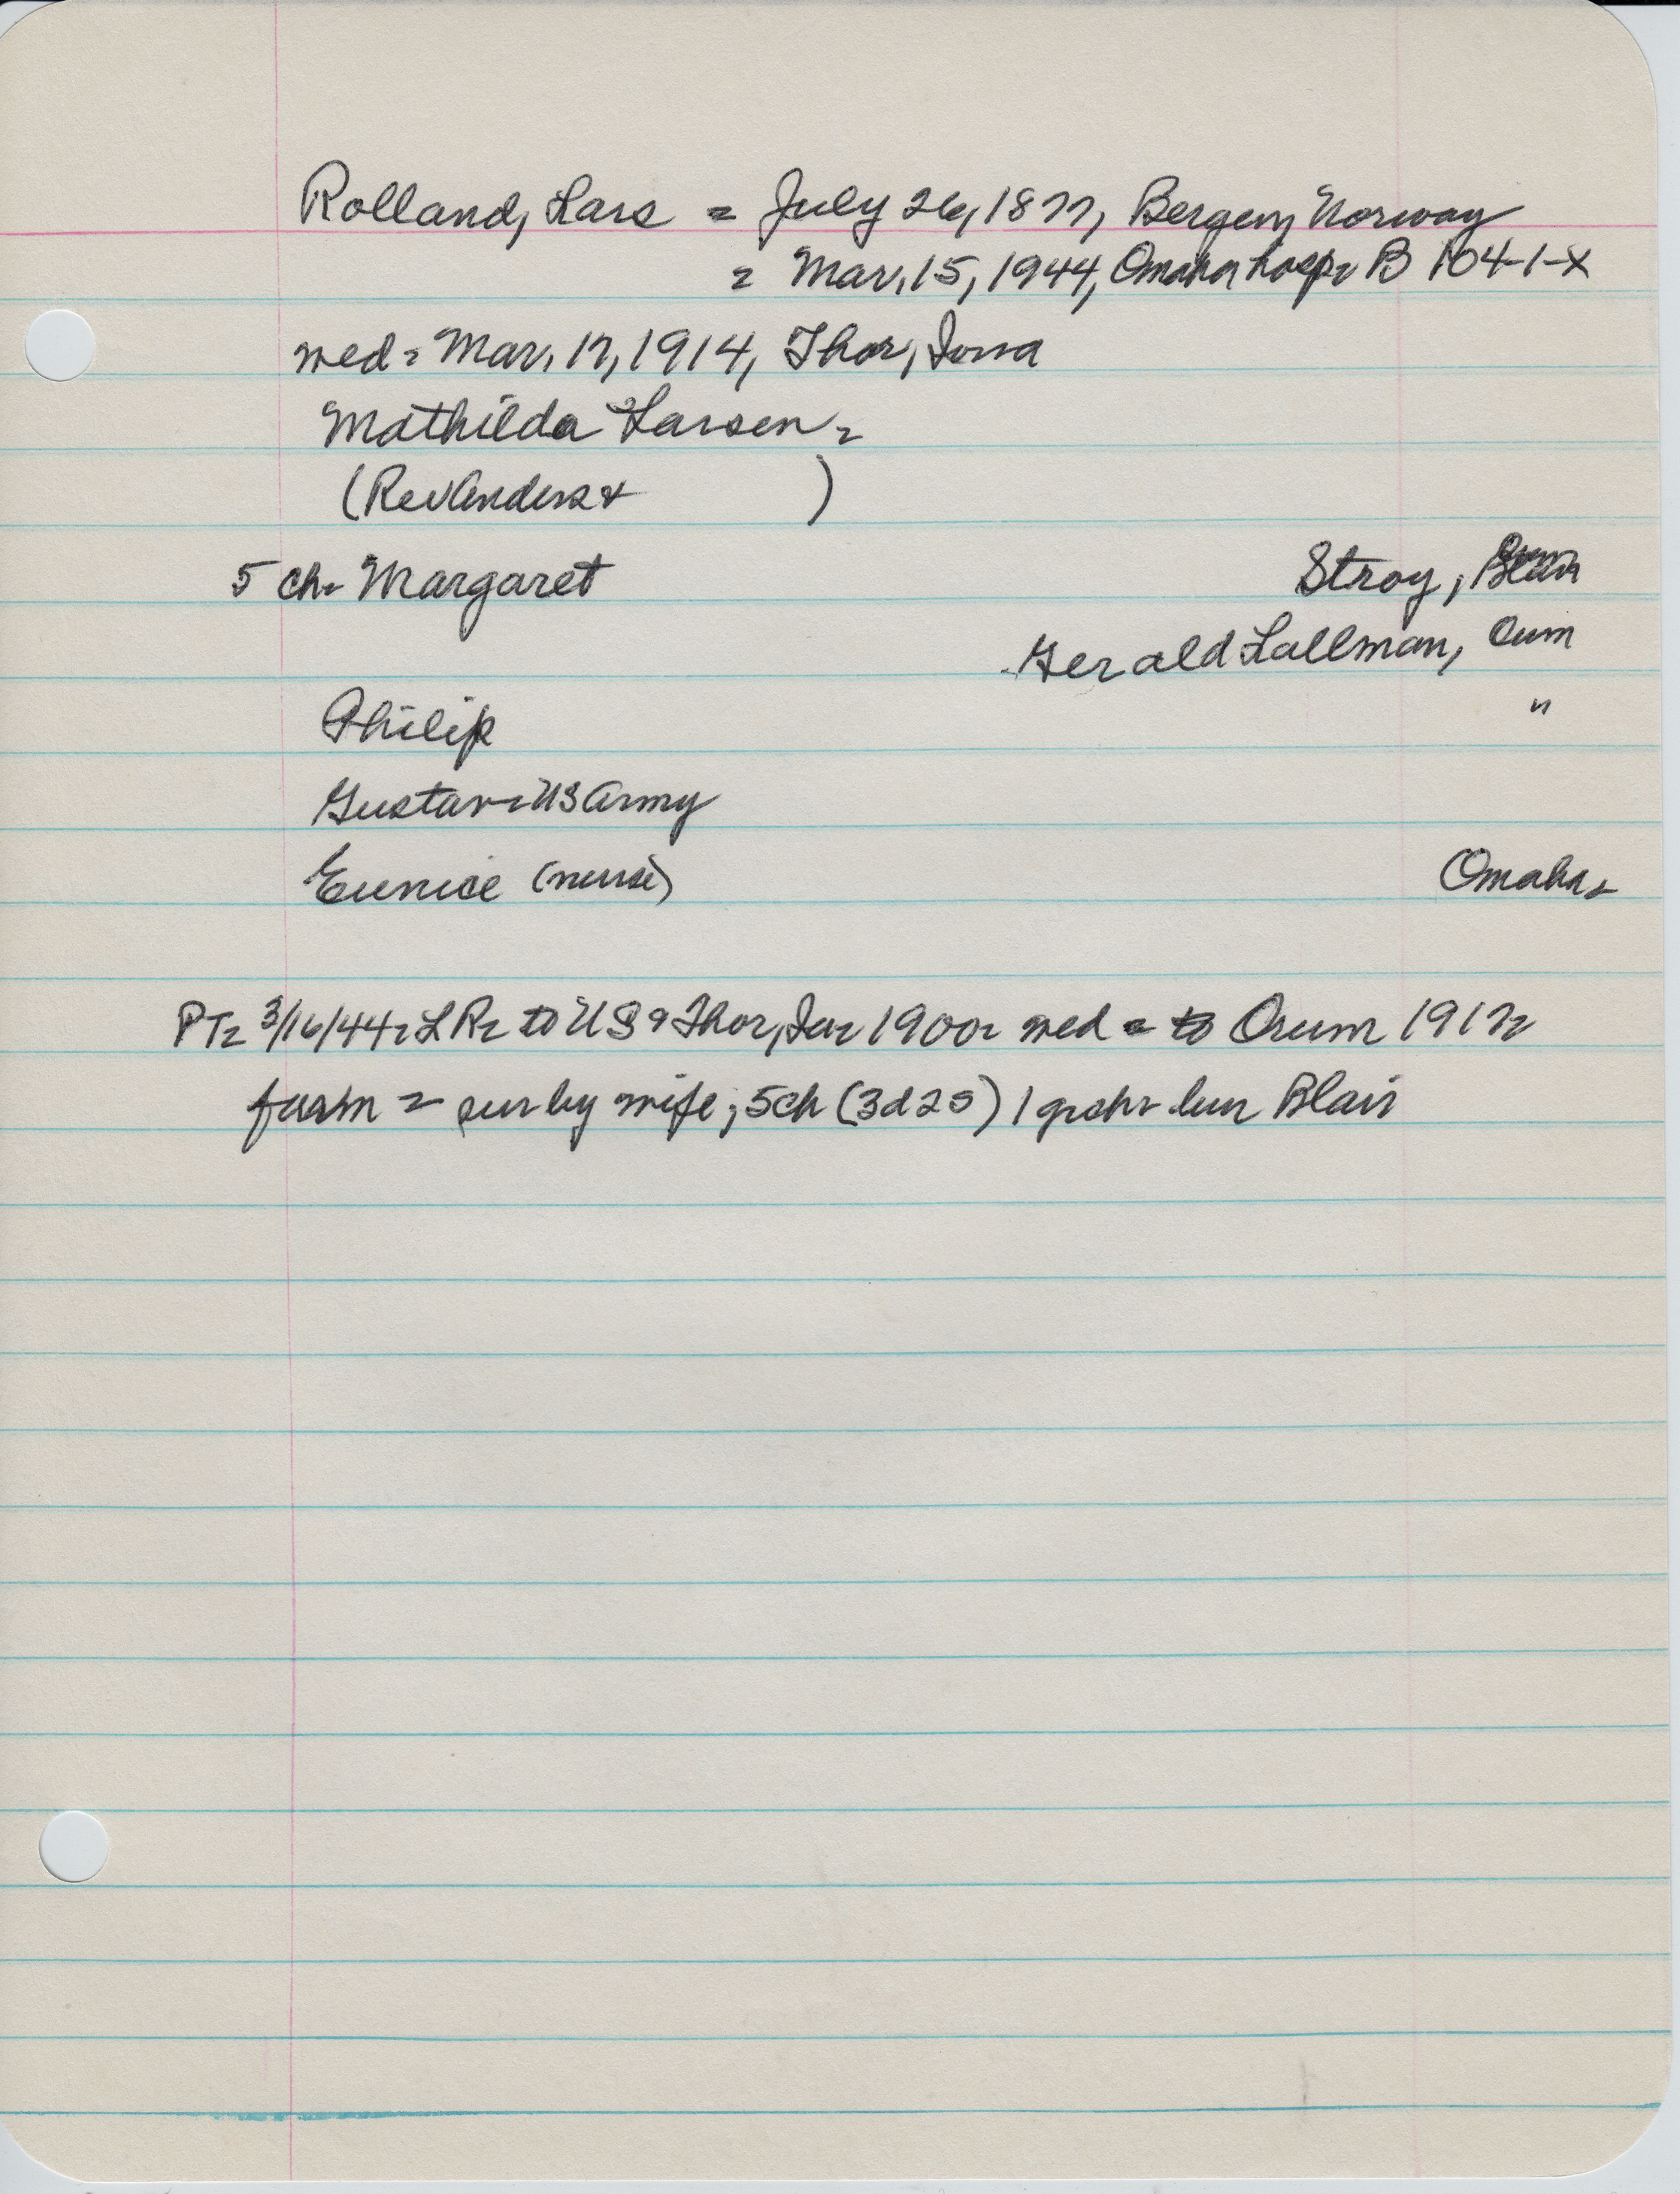 Rolland, Lars = July 26, 1877, Bergen, Norway
= Mar. 15, 1944, Omaha hosp = B 104-1-X
wed = Mar. 17, 1914, Thor, Iowa
Mathilda Larsen =
(Rev Anders & )
5 ch = Margaret Stroy, Blair
Gerald Lallman, Orum
Philip "
Gustav = US Army
Eunice (nurse) Omaha =
PT = 3/16/44 = LR = to US & Thor, Ia = 1900 = wed = to Orum 1917 =
farm = sur by wife; 5 ch (3d 2s) 1 grch = bur Blair